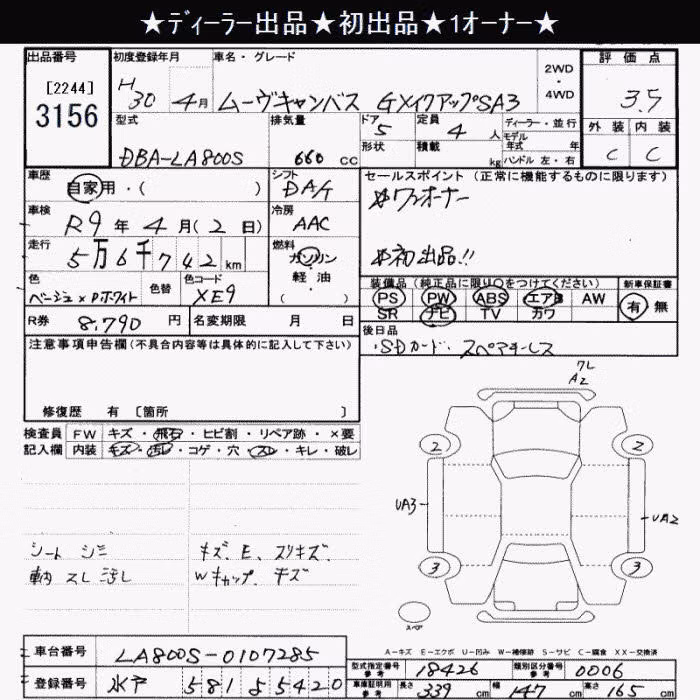 ★ディーラー出品★初出品★1オーナー★
出品番号 初度登録年月 車名・グレード 2WD・4WD 評価点
[2244]
3156
H30 4月 ムーヴキャンバス GXイクアップSA3 3.5
型式 排気量 ドア 定員 ディーラー・並行 外装 内装
DBA-LA800S 660 CC 5 4人 モデル年式 年
形状 積載 kg ハンドル 左・右 C C
車歴 シフト セールスポイント(正常に機能するものに限ります)
自家用・( ) DAT ☆ワンオーナー
車検 冷房
R9年4月(2日) AAC
走行 燃料 ☆初出品!!
5万6千742km ガソリン・軽油
色 色替 色コード ( ) 装備品(純正品に限り○をつけてください) 新車保証書
ベージュ×Pホワイト XE9 PS PW ABS エアB AW 有 無
SR ナビ TV カワ
R券 8,790円 名変期限 月 日 後日品
・SDカード・スペアキーレス
注意事項申告欄(不具合内容等は具体的に記入して下さい)
修復歴 有 [箇所 ]
検査員 FW キズ・飛石・ヒビ割・リペア跡・×要
記入欄 内装 キズ・汚レ・コゲ・穴・スレ・キレ・破レ
ワレ
A2
2 2
UA3 UA2
3 3
スペア
シート シミ キズ、E、スリキズ
車内 スレ 汚レ Wキャップ、キズ
A-キズ E-エクボ U-凹み W-補修跡 S-サビ C-腐食 XX-交換済
車台番号 LA800S-0107285
型式指定番号 参考 18426 類別区分番号 参考 0006
登録番号 水戸 581 よ 5420
車庫証明用 参考 長さ 339cm 幅 147cm 高さ 165cm